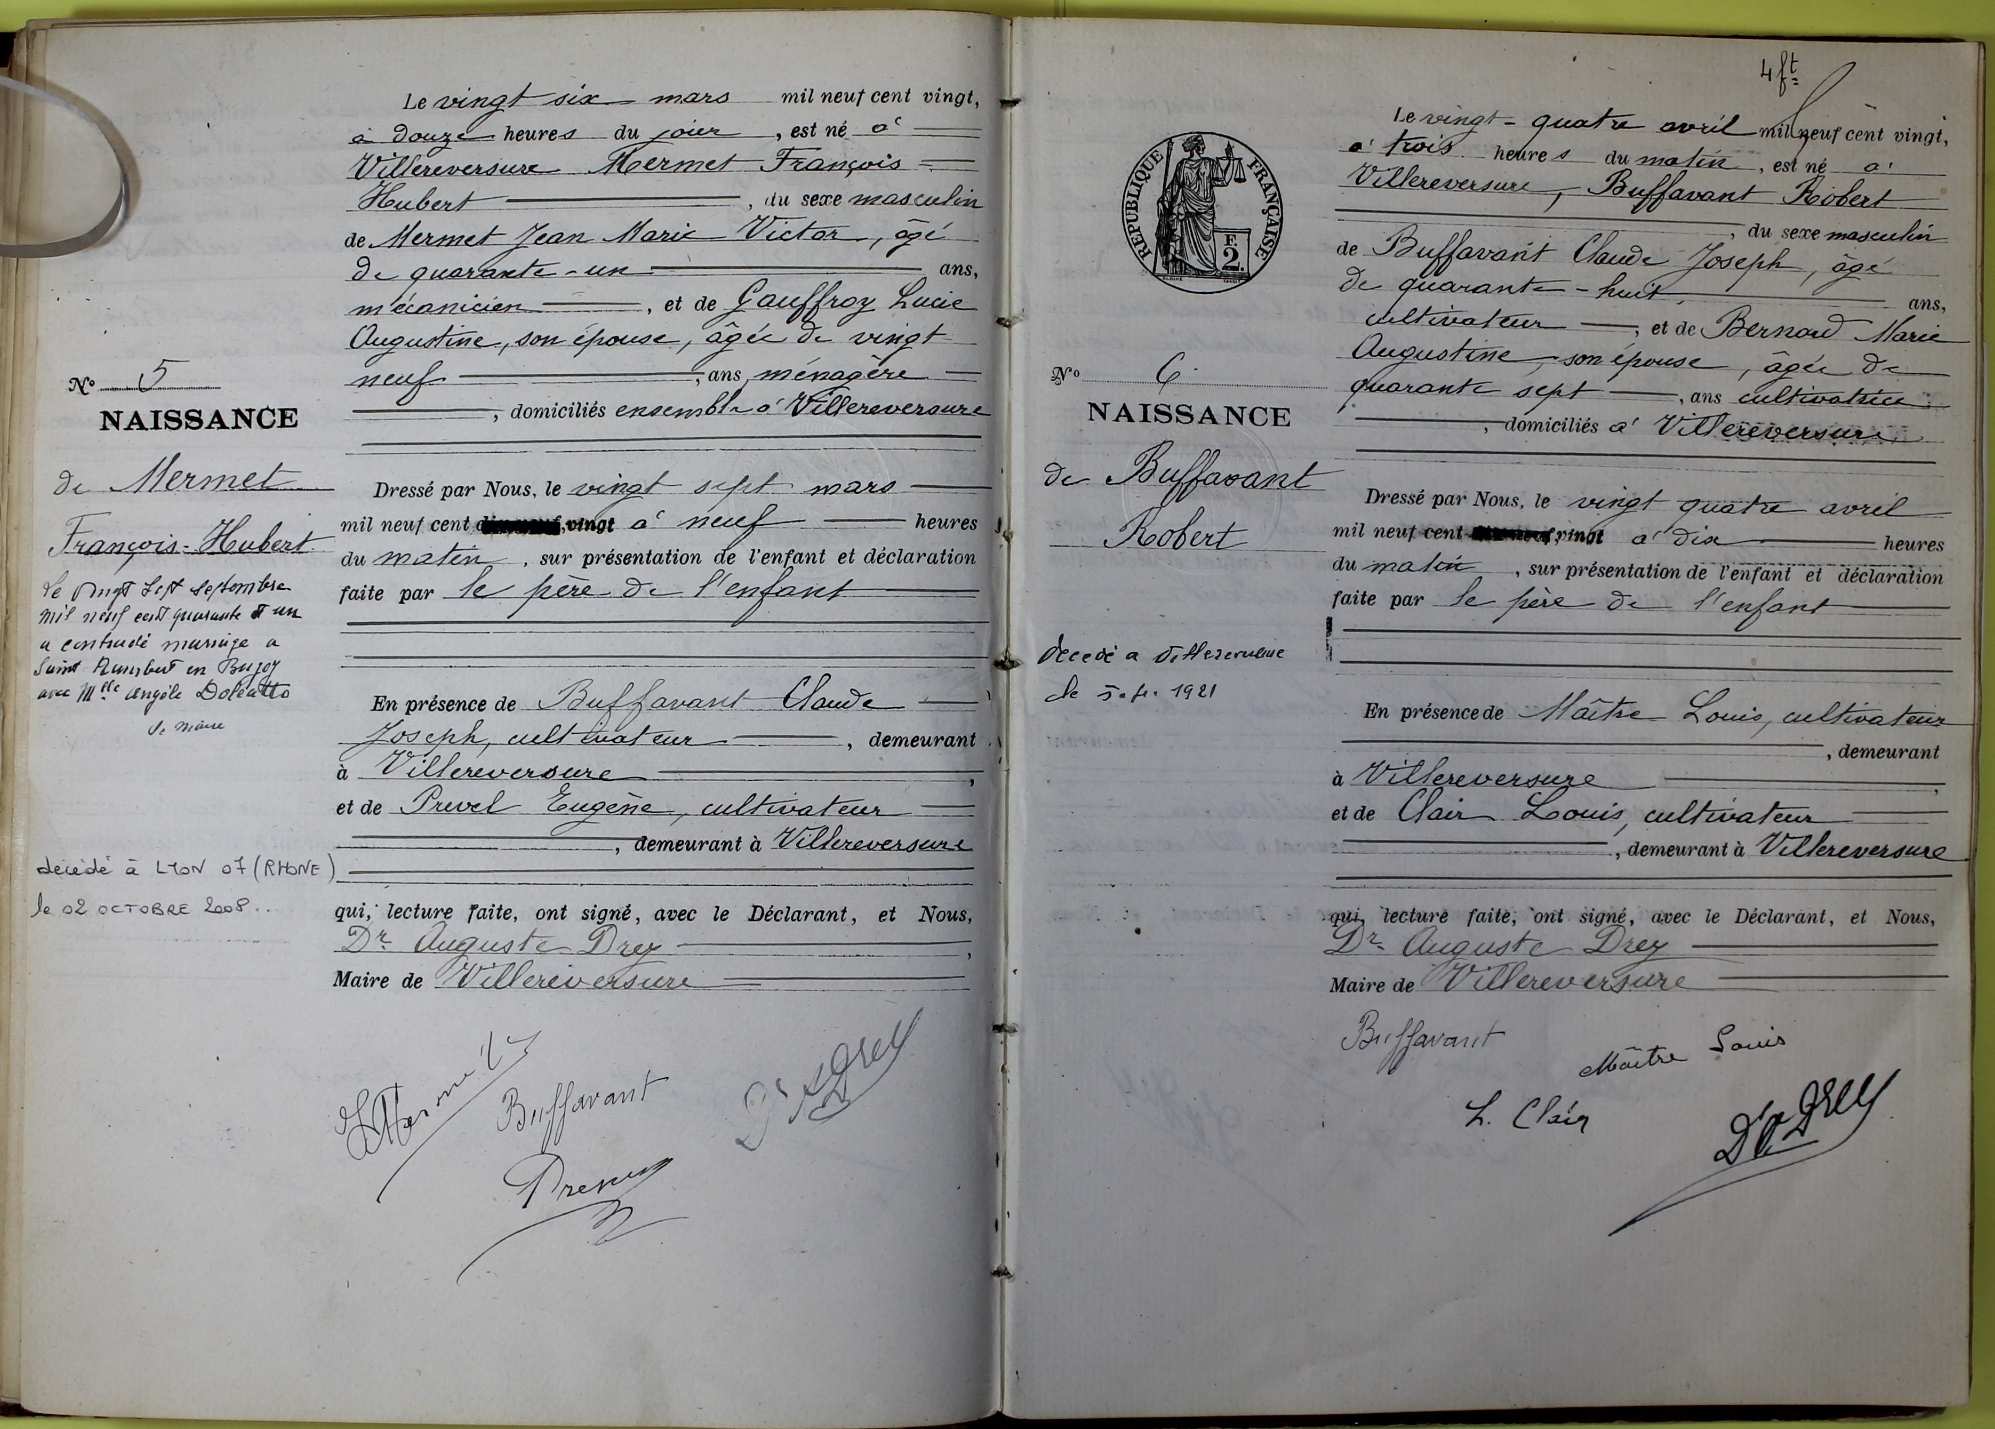 Le vingt six mars mil neuf cent vingt,
à douze heures du jour, est né à
Villereversure Mermet François
Hubert, du sexe masculin
de Mermet Jean Marie Victor, âgé
de quarante-un ans,
mécanicien, et de Gauffroy Lucie
Augustine, son épouse, âgée de vingt
neuf, ans, ménagère
, domiciliés ensemble à Villereversure
N° 5
NAISSANCE
de Mermet
François-Hubert
Le vingt sept septembre
mil neuf cent quarante et un
a contracté mariage a
Saint Rambert en Bugey
avec Mlle Angèle Doléatto
le maire
décédé à LYON 07 (RHONE)
le 02 OCTOBRE 2008
Dressé par Nous, le vingt sept mars
mil neuf cent vingt à neuf heures
du matin, sur présentation de l'enfant et déclaration
faite par le père de l'enfant
En présence de Buffavant Claude
Joseph, cultivateur, demeurant
à Villereversure,
et de Prevel Eugène, cultivateur
, demeurant à Villereversure
qui, lecture faite, ont signé, avec le Déclarant, et Nous,
Dr Auguste Drey,
Maire de Villereversure
Buffavant
Dr A Drey
4 ft
RÉPUBLIQUE FRANÇAISE
F.
2.
Le vingt-quatre avril mil neuf cent vingt,
à trois heures du matin, est né à
Villereversure, Buffavant Robert
, du sexe masculin
de Buffavant Claude Joseph, âgé
de quarante-huit, ans,
cultivateur, et de Bernard Marie
Augustine, son épouse, âgée de
quarante sept, ans cultivatrice
, domiciliés à Villereversure
N° 6
NAISSANCE
de Buffavant
Robert
décédé a
le 1921
Dressé par Nous, le vingt quatre avril
mil neuf cent vingt à dix heures
du matin, sur présentation de l'enfant et déclaration
faite par le père de l'enfant
En présence de Maître Louis, cultivateur
, demeurant
à Villereversure,
et de Clair Louis, cultivateur
, demeurant à Villereversure
qui, lecture faite, ont signé, avec le Déclarant, et Nous,
Dr Auguste Drey
Maire de Villereversure
Buffavant
Maître Louis
L. Clair
Dr A Drey